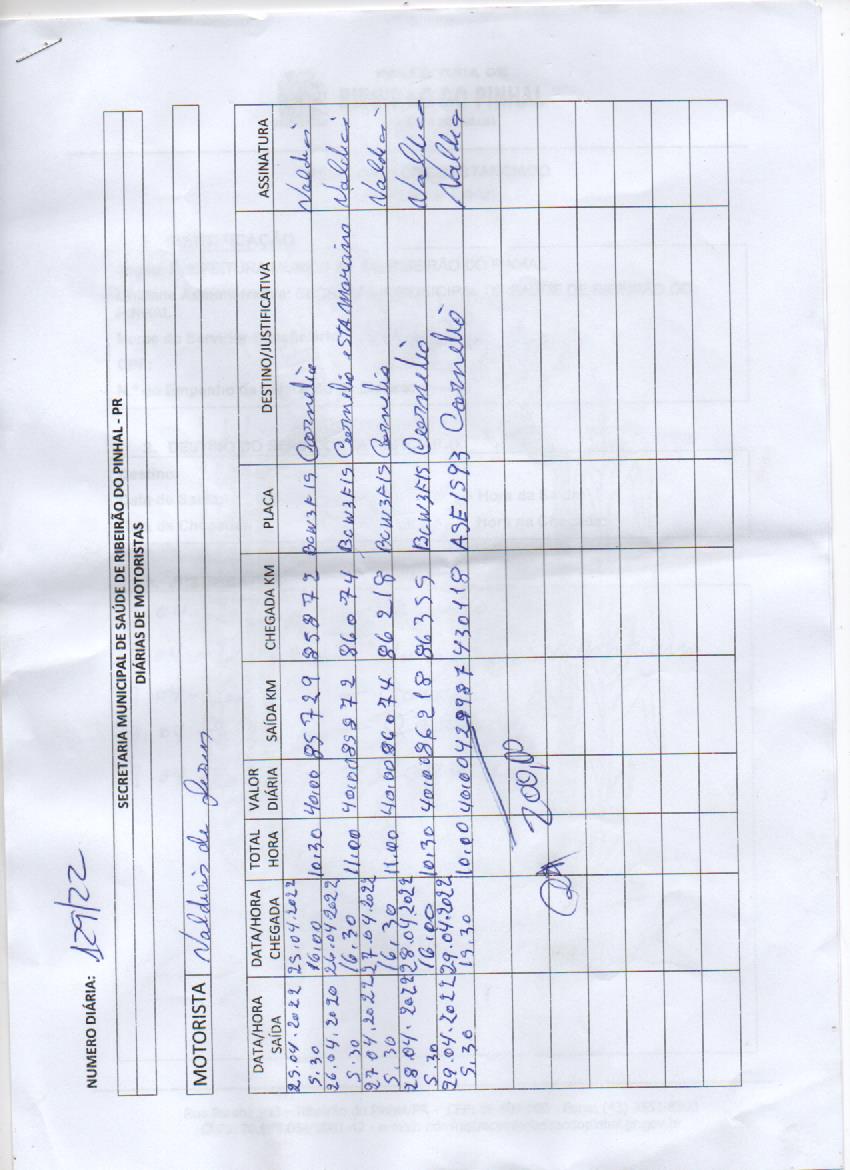 NUMERO DIÁRIA: 129/22
SECRETARIA MUNICIPAL DE SAÚDE DE RIBEIRÃO DO PINHAL - PR
DIÁRIAS DE MOTORISTAS
MOTORISTA Valdicir de
DATA/HORA SAÍDA DATA/HORA CHEGADA TOTAL HORA VALOR DIÁRIA SAÍDA KM CHEGADA KM PLACA DESTINO/JUSTIFICATIVA ASSINATURA
25.04.2022 25.04.2022
5.30 16.00 10:30 40.00 85729 85872 BCW3F15 Cornelio Valdici
26.04.2020 26.04.2022
5.30 16.30 11:00 40.00 85872 86074 BCW3F15 Cornelio e STA Mariana Valdici
27.04.2022 27.04.2022
5.30 16.30 11.00 40.00 86074 86218 BCW3F15 Cornelio Valdici
28.04.2022 28.04.2022
5.30 16.00 10:30 40.00 86218 86355 BCW3F15 Cornelio Valdici
29.04.2022 29.04.2022
5.30 15.30 10:00 40.00 429987 430118 ASE1593 Cornelio Valdici
200,00